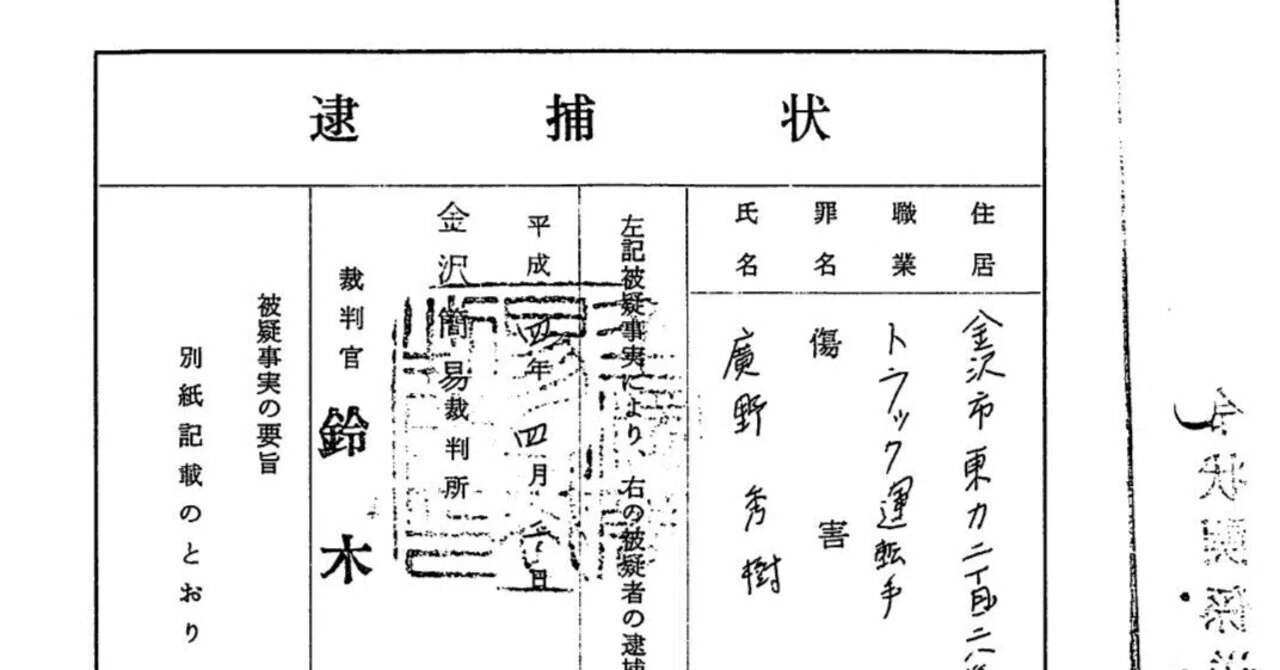 逮捕状
住居
金沢市東力二丁目二八
職業
トラック運転手
罪名
傷害
氏名
廣野秀樹
左記被疑事実により、右の被疑者の逮捕
平成四年四月 日
金沢簡易裁判所
裁判官 鈴木
被疑事実の要旨
別紙記載のとおり